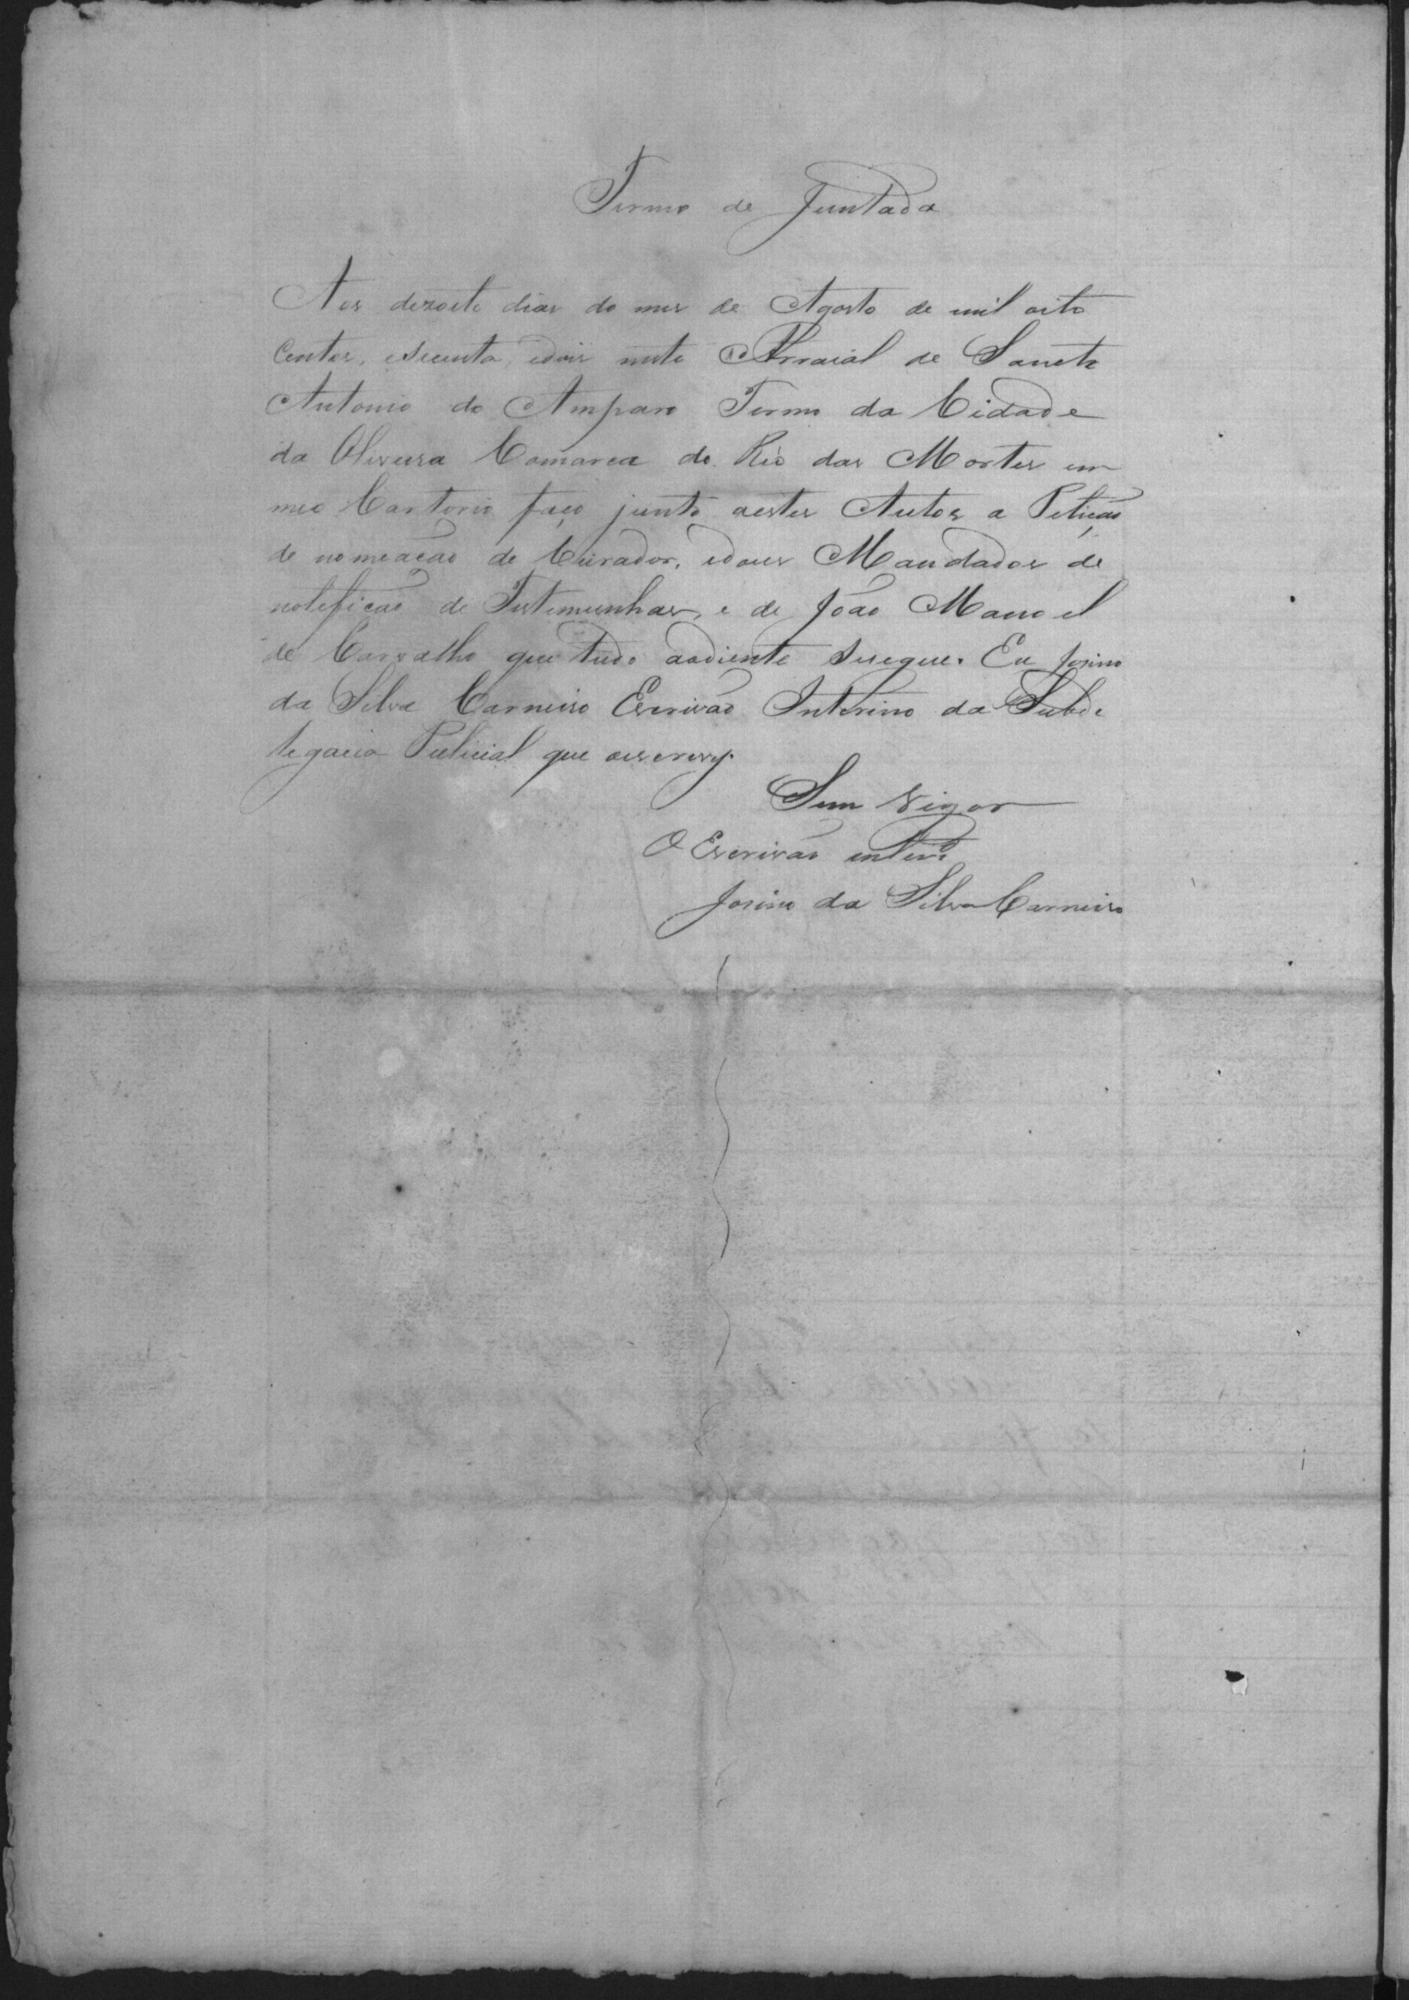 Termo de Juntada
Aos dezoito dias do mes de Agosto de mil oito
centos, esecenta, edois neste Arraial de Sancto
Antonio do Amparo Termo da Cidade
da Oliveira Comarca do Rio das Mortes em
meo Cartorio faço junto aestes Autos a Petição
de nomeação de Curador, edous Mandados de
noteficaõ de Testemunhas, e de João Manoel
de Carvalho que tudo aodiente Suegue. Eu Josino
da Silva Carneiro Escrivaõ Interino da Subde
legacia Policial que oescrevy.
Sem Vigor
O Escrivaõ inter.º
Josino da Silva Carneiro